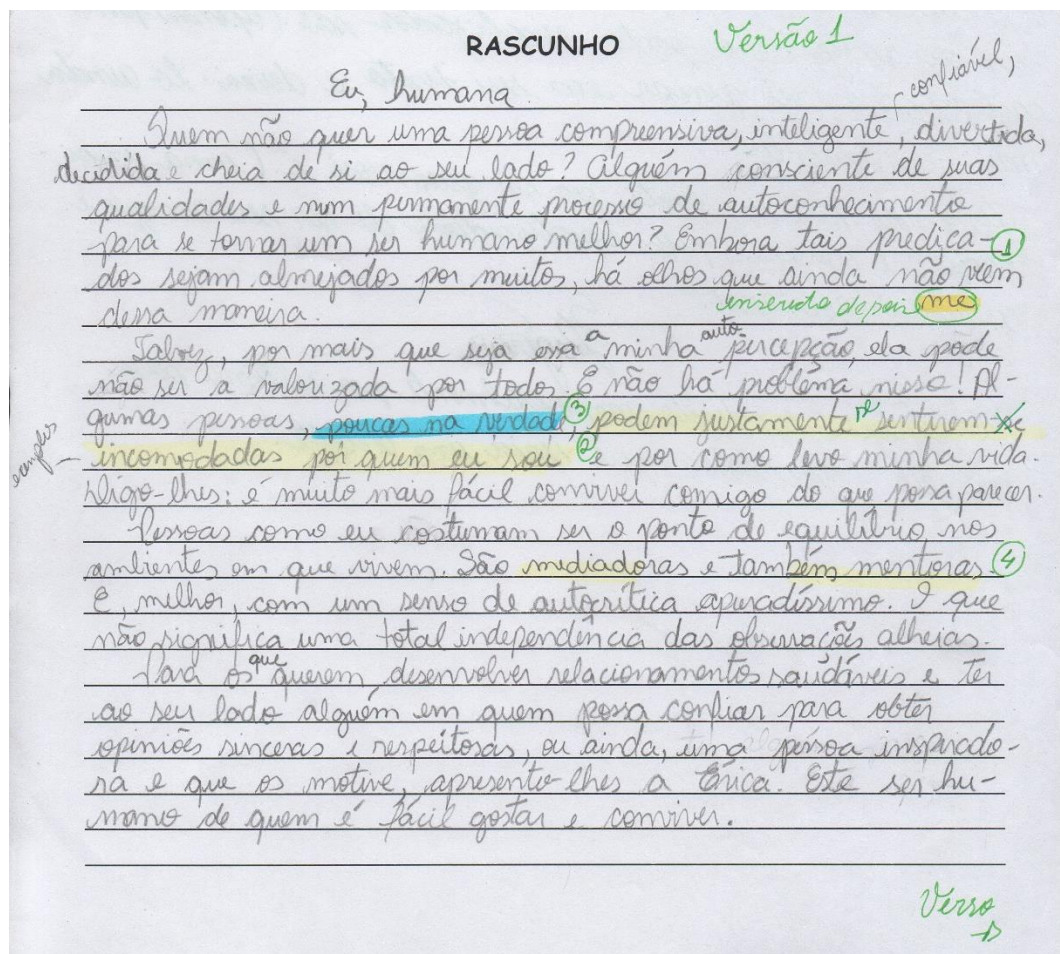 RASCUNHO Versão 1
Eu, humana
confiável,
Quem não quer uma pessoa compreensiva, inteligente, divertida,
decidida e cheia de si ao seu lado? Alguém consciente de suas
qualidades e num permanente processo de autoconhecimento
para se tornar um ser humano melhor? Embora tais predica- 1
dos sejam almejados por muitos, há olhos que ainda não veem
dessa maneira. inserido depois me
Talvez, por mais que seja essa a minha auto percepção, ela pode
não ser a valorizada por todos. E não há problema nisso! Al-
gumas pessoas, poucas na verdade, 3 podem justamente se sentirem-se
exemplos incomodadas por quem eu sou 2 e por como levo minha vida.
Digo-lhes: é muito mais fácil conviver comigo do que possa parecer.
Pessoas como eu costumam ser o ponto de equilíbrio nos
ambientes em que vivem. São mediadoras e também mentoras 4
E, melhor, com um senso de autocrítica apuradíssimo. O que
não significa uma total independência das observações alheias.
Para os que querem desenvolver relacionamentos saudáveis e ter
ao seu lado alguém em quem possa confiar para obter
opiniões sinceras e respeitosas, ou ainda, uma pessoa inspirado-
ra e que os motive, apresento-lhes a Érica. Este ser hu-
mano de quem é fácil gostar e conviver.
Verso